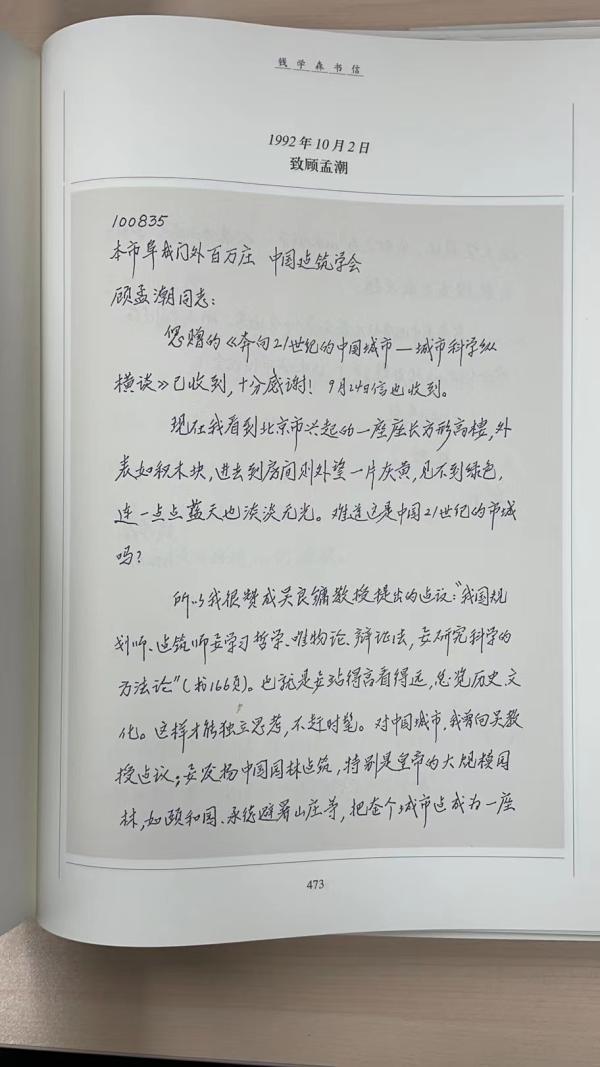 钱学森书信
1992年10月2日
致顾孟潮
100835
本市阜成门外百万庄 中国建筑学会
顾孟潮同志：
您赠的《奔向21世纪的中国城市—城市科学纵
横谈》已收到，十分感谢！9月24日信也收到。
现在我看到北京市兴起的一座座长方形高楼，外
表如积木块，进去到房间则外望一片灰黄，见不到绿色，
连一点点蓝天也淡淡无光。难道这是中国21世纪的市城
吗？
所以我很赞成吴良镛教授提出的建议：“我国规
划师、建筑师要学习哲学、唯物论、辩证法，要研究科学的
方法论”(书166页)。也就是要站得高看得远，总览历史、文
化。这样才能独立思考，不赶时髦。对中国城市，我曾向吴教
授建议：要发扬中国园林建筑，特别是皇帝的大规模园
林，如颐和园、承德避暑山庄等，把整个城市建成为一座
473